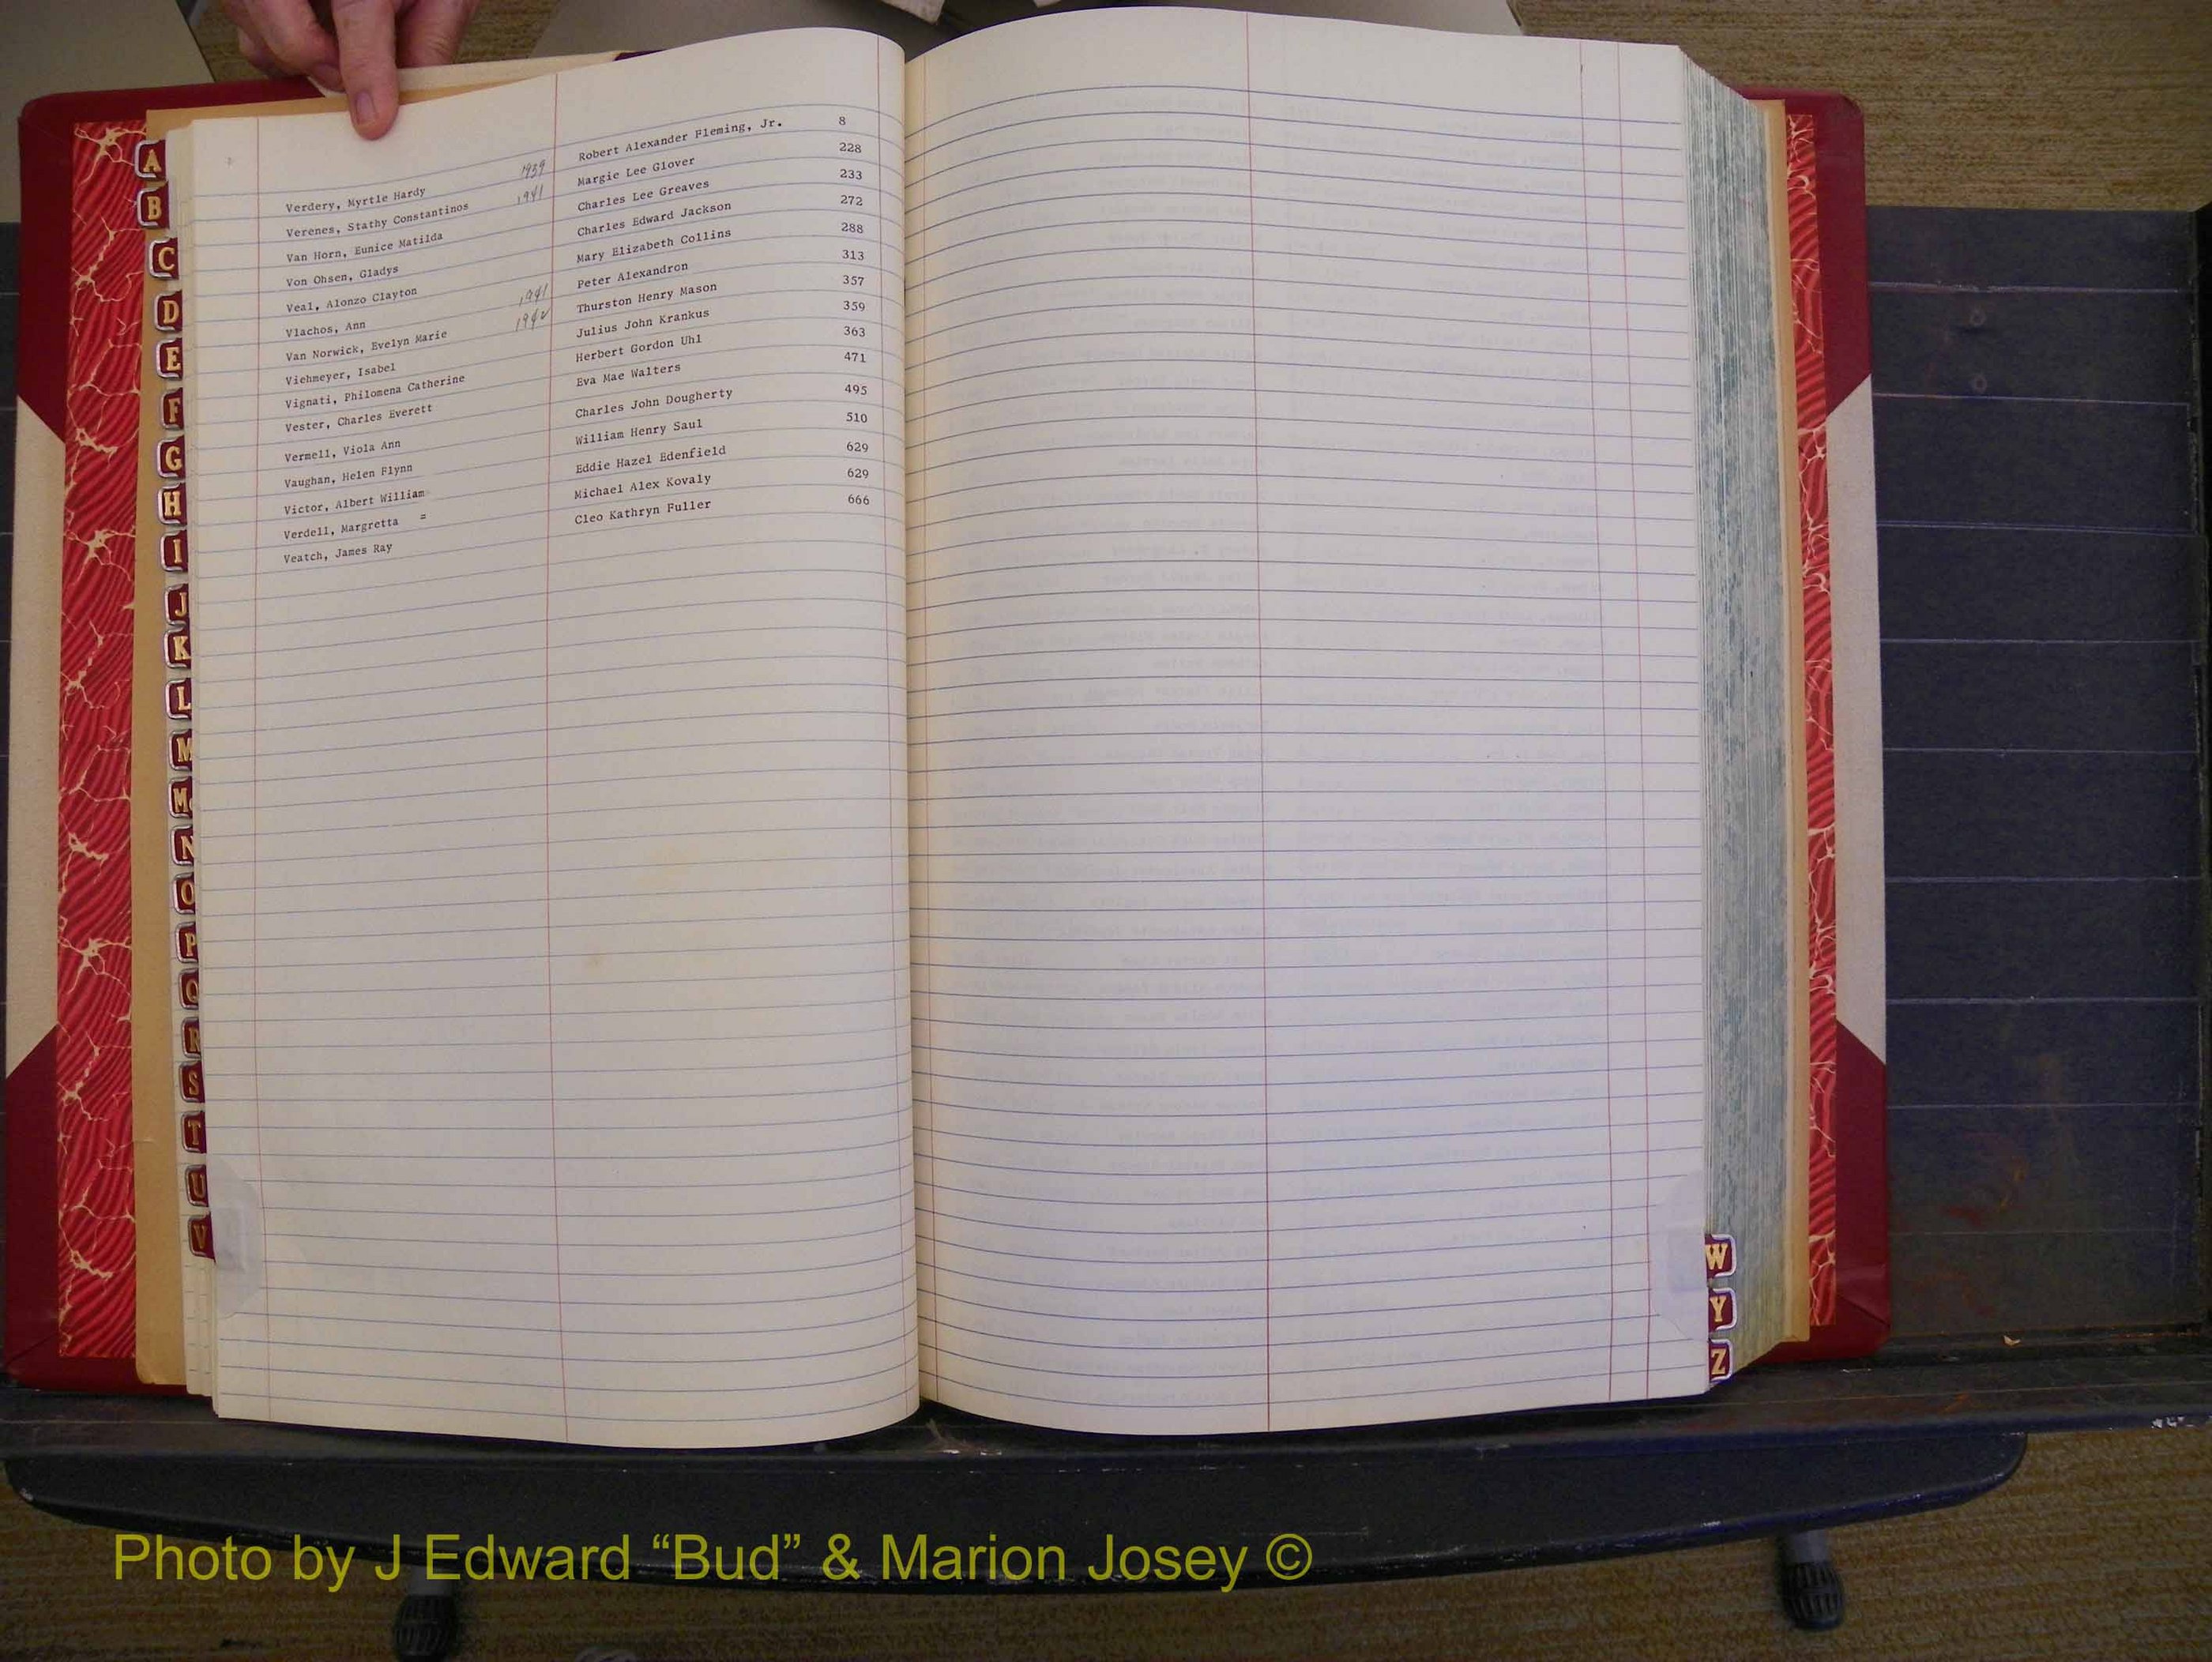 Verdery, Myrtle Hardy 1939 Robert Alexander Fleming, Jr. 8
Verenes, Stathy Constantinos 1941 Margie Lee Glover 228
Van Horn, Eunice Matilda Charles Lee Greaves 233
Von Ohsen, Gladys Charles Edward Jackson 272
Veal, Alonzo Clayton Mary Elizabeth Collins 288
Vlachos, Ann 1941 Peter Alexandron 313
Van Norwick, Evelyn Marie 1942 Thurston Henry Mason 357
Viehmeyer, Isabel Julius John Krankus 359
Vignati, Philomena Catherine Herbert Gordon Uhl 363
Vester, Charles Everett Eva Mae Walters 471
Vermell, Viola Ann Charles John Dougherty 495
Vaughan, Helen Flynn William Henry Saul 510
Victor, Albert William Eddie Hazel Edenfield 629
Verdell, Margretta = Michael Alex Kovaly 629
Veatch, James Ray Cleo Kathryn Fuller 666
A
B
C
D
E
F
G
H
I
J
K
L
M
Mc
N
O
P
Q
R
S
T
U
V
W
Y
Z
Photo by J Edward “Bud” & Marion Josey ©